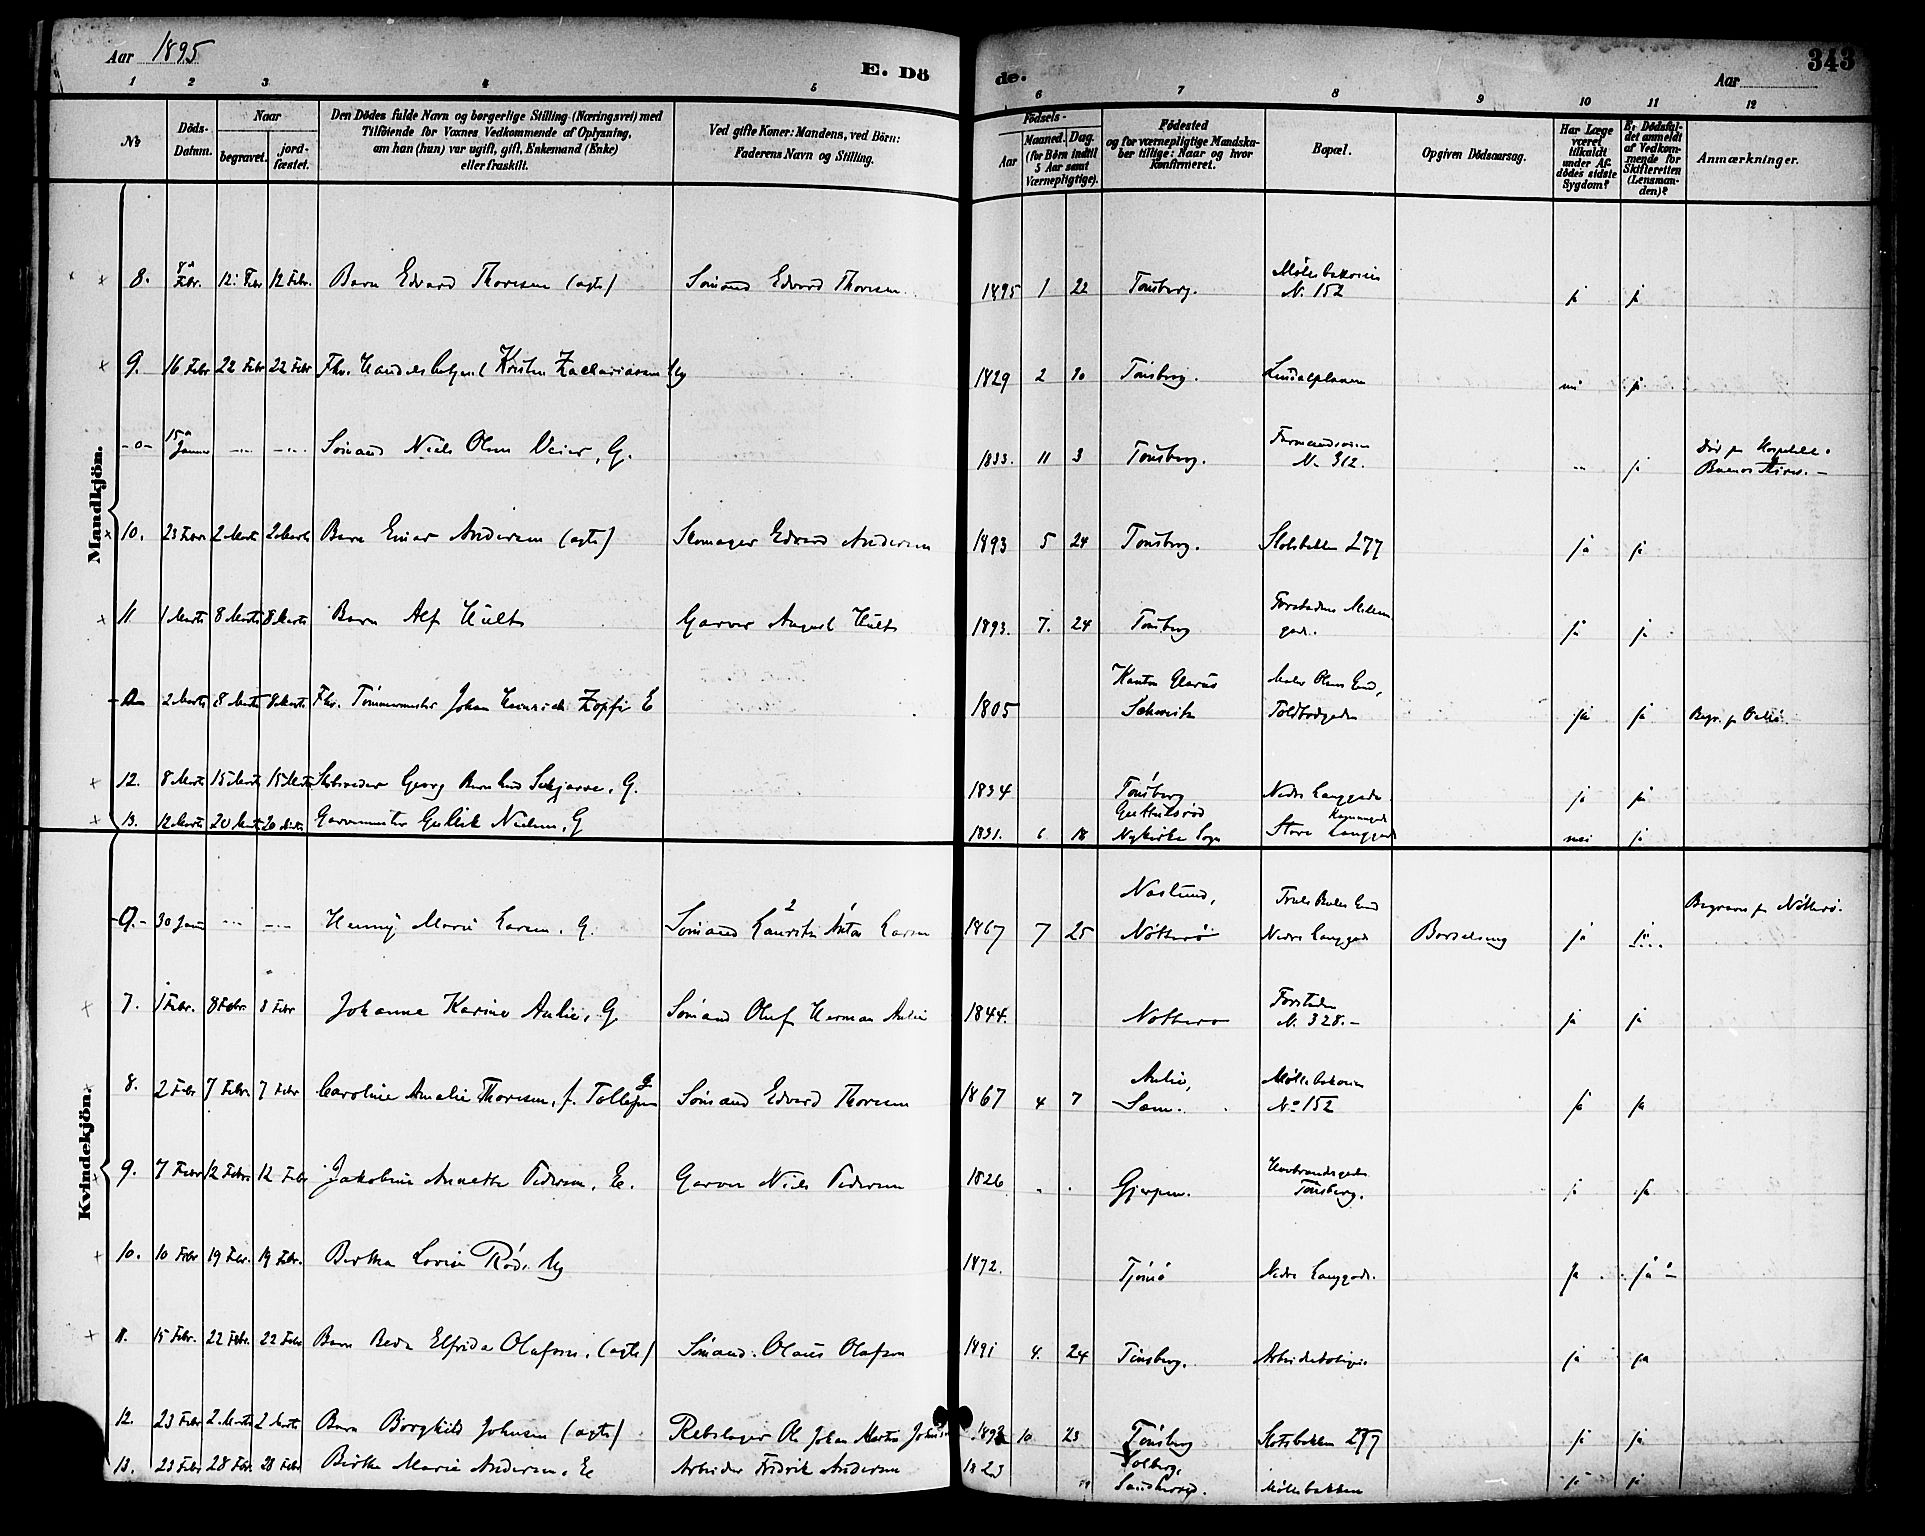 Aar 1895
E. Dö
de.
Aar
343
1 2 3 4 5 6 7 8 9 10 11 12
№
Döds-
Datum.
Naar
begravet.
jord-
fæstet.
Den Dödes fulde Navn og borgerlige Stilling (Næringsvei) med
Tilföiende for Voxnes Vedkommende af Oplysning,
om han (hun) var ugift, gift, Enkemand (Enke)
eller fraskilt.
Ved gifte Koner: Mandens, ved Börn:
Faderens Navn og Stilling.
Födsels-
Aar
Maaned. Dag.
(for Börn indtil
5 Aar samt
Værnepligtige).
Födested
og for værnepligtige Mandska-
ber tillige: Naar og hvor
konfirmeret.
Bopæl.
Opgiven Dödsaarsag.
Har Læge
været
tilkaldt
under Af-
dödes sidste
Sygdom?
Er Dödsfal-
det anmeldt
af Vedkom-
mende for
Skifteretten
(Lensman-
den)?
Anmærkninger.
Mandkjön.
8. Febr. 12. Febr 12 Febr. Barn Edvard Thoresen (ægte) Sömand Edvard Thoresen 1895 1 22 Tönsberg. Möllebakken N. 152 ja ja
9. 16 Febr 22 Febr 22 Febr Fhv. Kristen Zachariasen Ug 1829 2 10 Tönsberg. nei ja
-0- 15 Januar Sömand Niels Olsen Veier, G. 1833. 11 3 Tönsberg. N. 312. ja Död paa Hospitalet i
Buenos Aires.
10. 23 Febr 2 Marts 2 Marts Barn Einar Andersen (ægte) Skomager Edvard Andersen 1893 5 24 Tönsberg. Slotsbakken 277 ja ja
11 1 Marts 8 Marts 8 Marts Barn Alf Hult Garver August Hult 1893. 7. 24 Tönsberg ja ja
2 Marts 8 Marts 8 Marts Fhv. Tömmermester Johan Heinrich Zopfi E 1805 Kanton Glarus
Schweitz Toldbodgaden ja ja
12. 8 Marts 15 Marts 15 Marts Georg Schjørve, G. 1834 Tönsberg Nedre Langgade. ja ja
13. 12 Marts 20 Marts 20 Marts Garvermester Gullik Nielsen, G 1831. 6 18 Nykirke Sogn Store Langgade nei ja
Kvindekjön.
-0- 30 Janu Henny Marie Larsen, G. Sömand Lauritz Anton Larsen 1867 7 25 Nötterö Nedre Langgade Barselseng ja ja Begraves paa Nötterö.
7. 1 Febr. 8 Febr. 8 Febr Johanne Karine Aulie, G Sömand Oluf Herman Aulie 1844. Nötterö
N. 328. ja ja
8. 2 Febr 7 Febr. 7 Febr Caroline Amalie Thoresen, f. Tollefsen G Sömand Edvard Thoresen 1867 4 7 Aulie,
Sem. Möllebakken
No 152 ja ja
9. 7 Febr 12 Febr. 12 Febr Jakobine Annette Pedersen, E. Garver Niels Pedersen 1826 Gjerpen. Tönsberg. ja ja
10. 10 Febr 19 Febr. 19 Febr. Berthe Lovise Röd, Ug 1872. Tjömö Nedre Langgade. ja ja
11. 15 Febr. 22 Febr. 22 Febr Barn Elfrida Olafsen, (ægte) Sömand Olaus Olafsen 1891 4. 24 Tönsberg. Arbeiderboligen ja ja
12. 23 Febr 2. Marts 2 Marts Barn Borghild Johnsen (ægte) Rebslager Ole Johan 10 23 Tönsberg Slotsbakken 277 ja ja
13. 23 Febr 28 Febr. 28 Febr Berthe Marie Andersen, E Arbeider Fredrik Andersen Solberg,
Sandeherred. Möllebakken ja ja